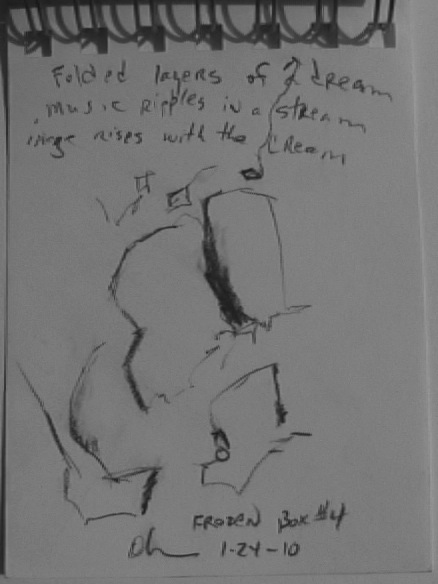 Folded layers of a dream
music ripples in a stream
rises with the cream
FROZEN BOX #4
1-24-10